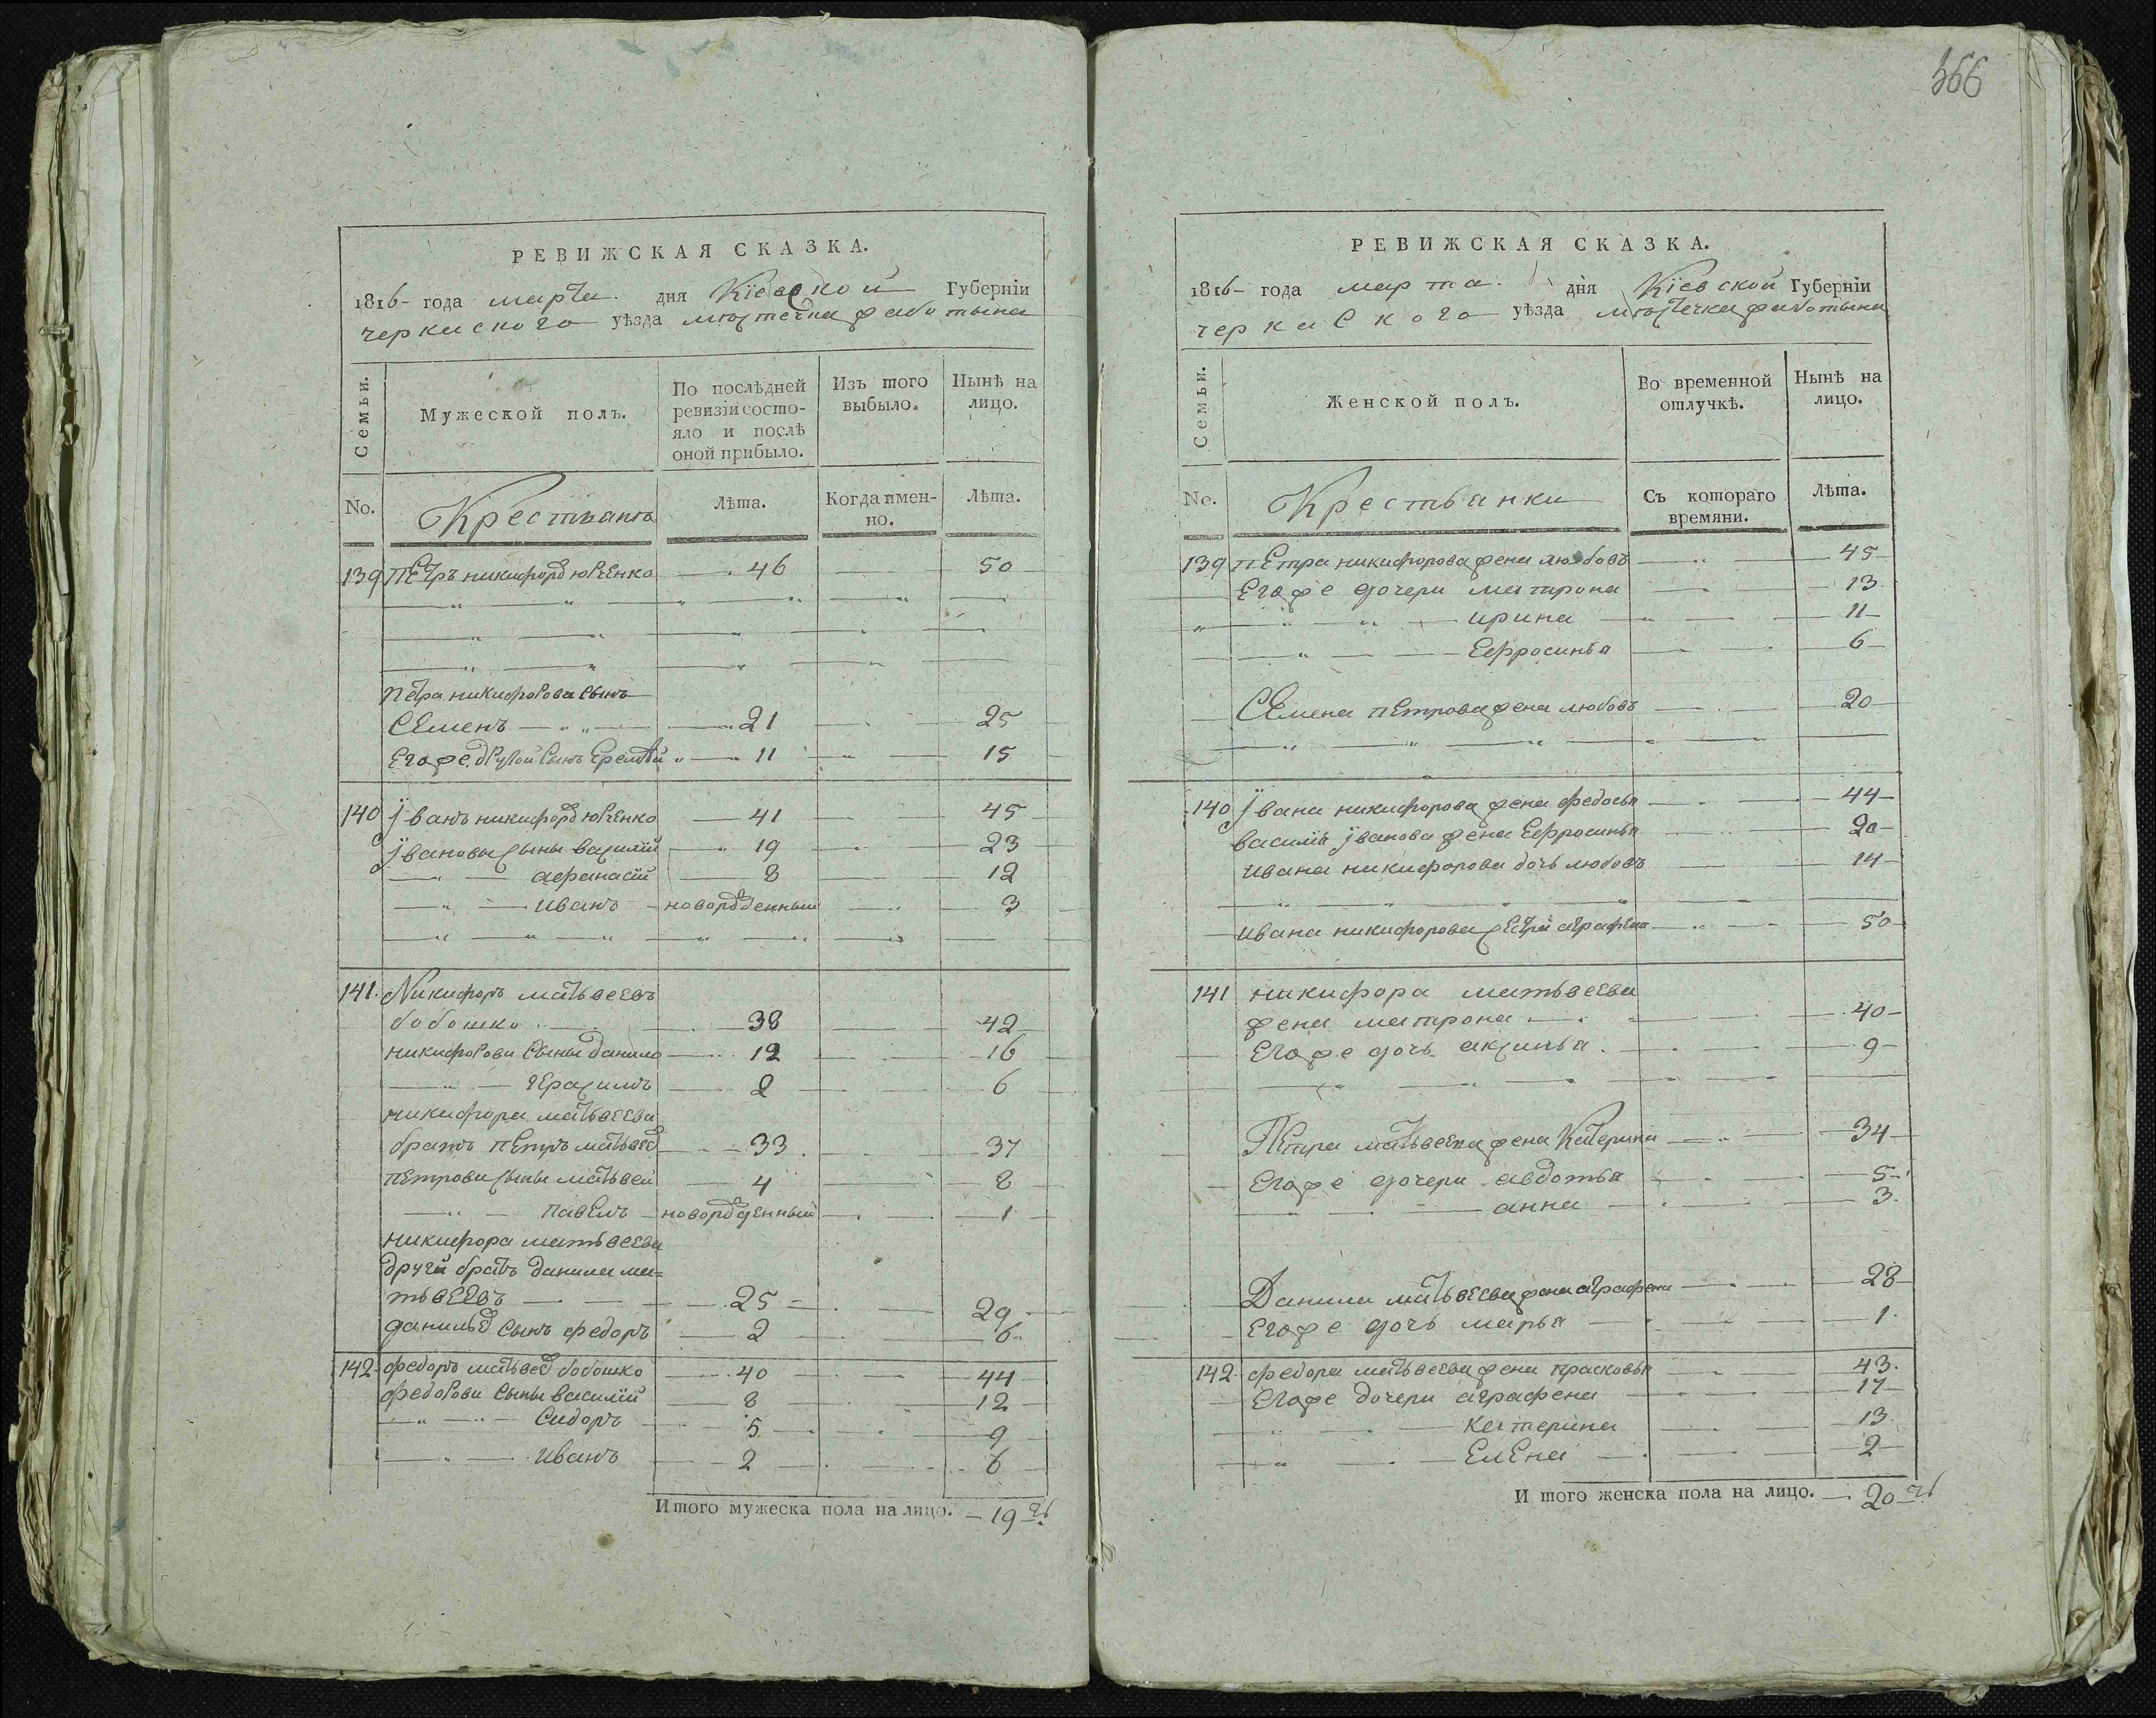 РЕВИЖСКАЯ СКАЗКА.
1816 года марта дня Кіевской Губерніи
черкаского уѣзда мѣстечка жаботына
Семьи.
Мужеской полъ.
По послѣдней ревизіи состояло и послѣ оной прибыло.
Изъ того выбыло.
Нынѣ на лицо.
No.
Крестьянъ
Лѣта.
Когда именно.
Лѣта.
139 Петръ никифоров юрченко 46 50
Петра никифорова сынъ
Семенъ 21 25
Его же другой сынъ Еремѣй 11 15
140 Іванъ никифоров юрченко 41 45
Івановы сыны василій 19 23
афанасій 8 12
иванъ новорожденный 3
141. Никифоръ матвеевъ
бобошко 38 42
никифорови сыны данило 12 16
герасимъ 2 6
никифора матвеева
братъ петръ матвеев 33 37
петрови сыны матвей 4 8
павелъ новорожденный 1
никифора матьвеева
други братъ данила ма=
тьвеевъ 25 29
данилов сынъ федоръ 2 6
142 федоръ матвеев бобошко 40 44
федорови сыны василій 8 12
Сидоръ 5 9
иванъ 2 6
Итого мужеска пола на лицо. 19
366
РЕВИЖСКАЯ СКАЗКА.
1816 года марта дня Кіевской Губерніи
черкаского уѣзда мѣстечка жаботына
Семьи.
Женской полъ.
Во временной отлучкѣ.
Нынѣ на лицо.
No.
Крестьянки
Съ котораго времяни.
Лѣта.
139 петра никифорова жена любовъ 45
Его же дочери матрона 13
ирина 11
Ефросинья 6
Семена петрова жена любовъ 20
140 Івана никифорова жена федосья 44
василія Іванова жена Ефросинья 20
ивана никифорова дочь любовъ 14
ивана никифорова сестра аграфена 50
141 никифора матьвеева
жена матрона 40
Его же дочь аксинья 9
Петра матвеева жена Катерина 34
Его же дочери авдотья 5
анна 3
Данила матвеева жена аграфена 28
Его же дочь марья 1
142 федора матвеева жена прасковья 43
Его же дочери аграфена 17
катерина 13
Елена 2
И того женска пола на лицо. 20